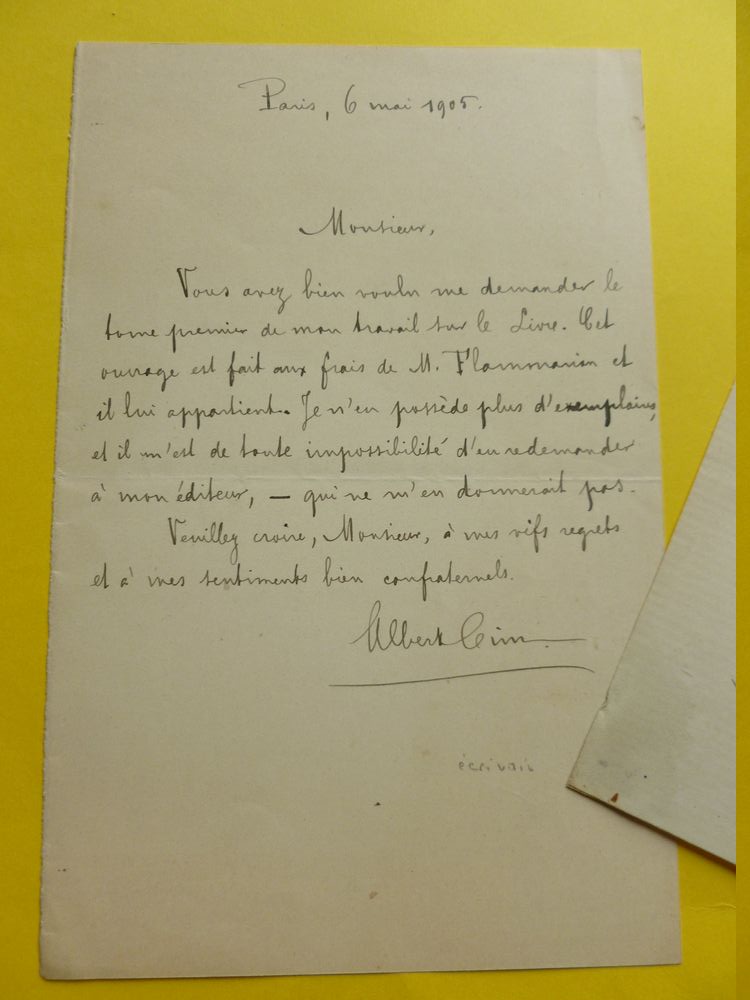 Paris, 6 mai 1905.
Monsieur,
Vous avez bien voulu me demander le
tome premier de mon travail sur le Livre. Cet
ouvrage est fait aux frais de M. Flammarion et
il lui appartient. Je n'en possède plus d'exemplaires,
et il m'est de toute impossibilité d'en redemander
à mon éditeur, — qui ne m'en donnerait pas.
Veuillez croire, Monsieur, à mes vifs regrets
et à mes sentiments bien confraternels.
Albert Cim
écrivain